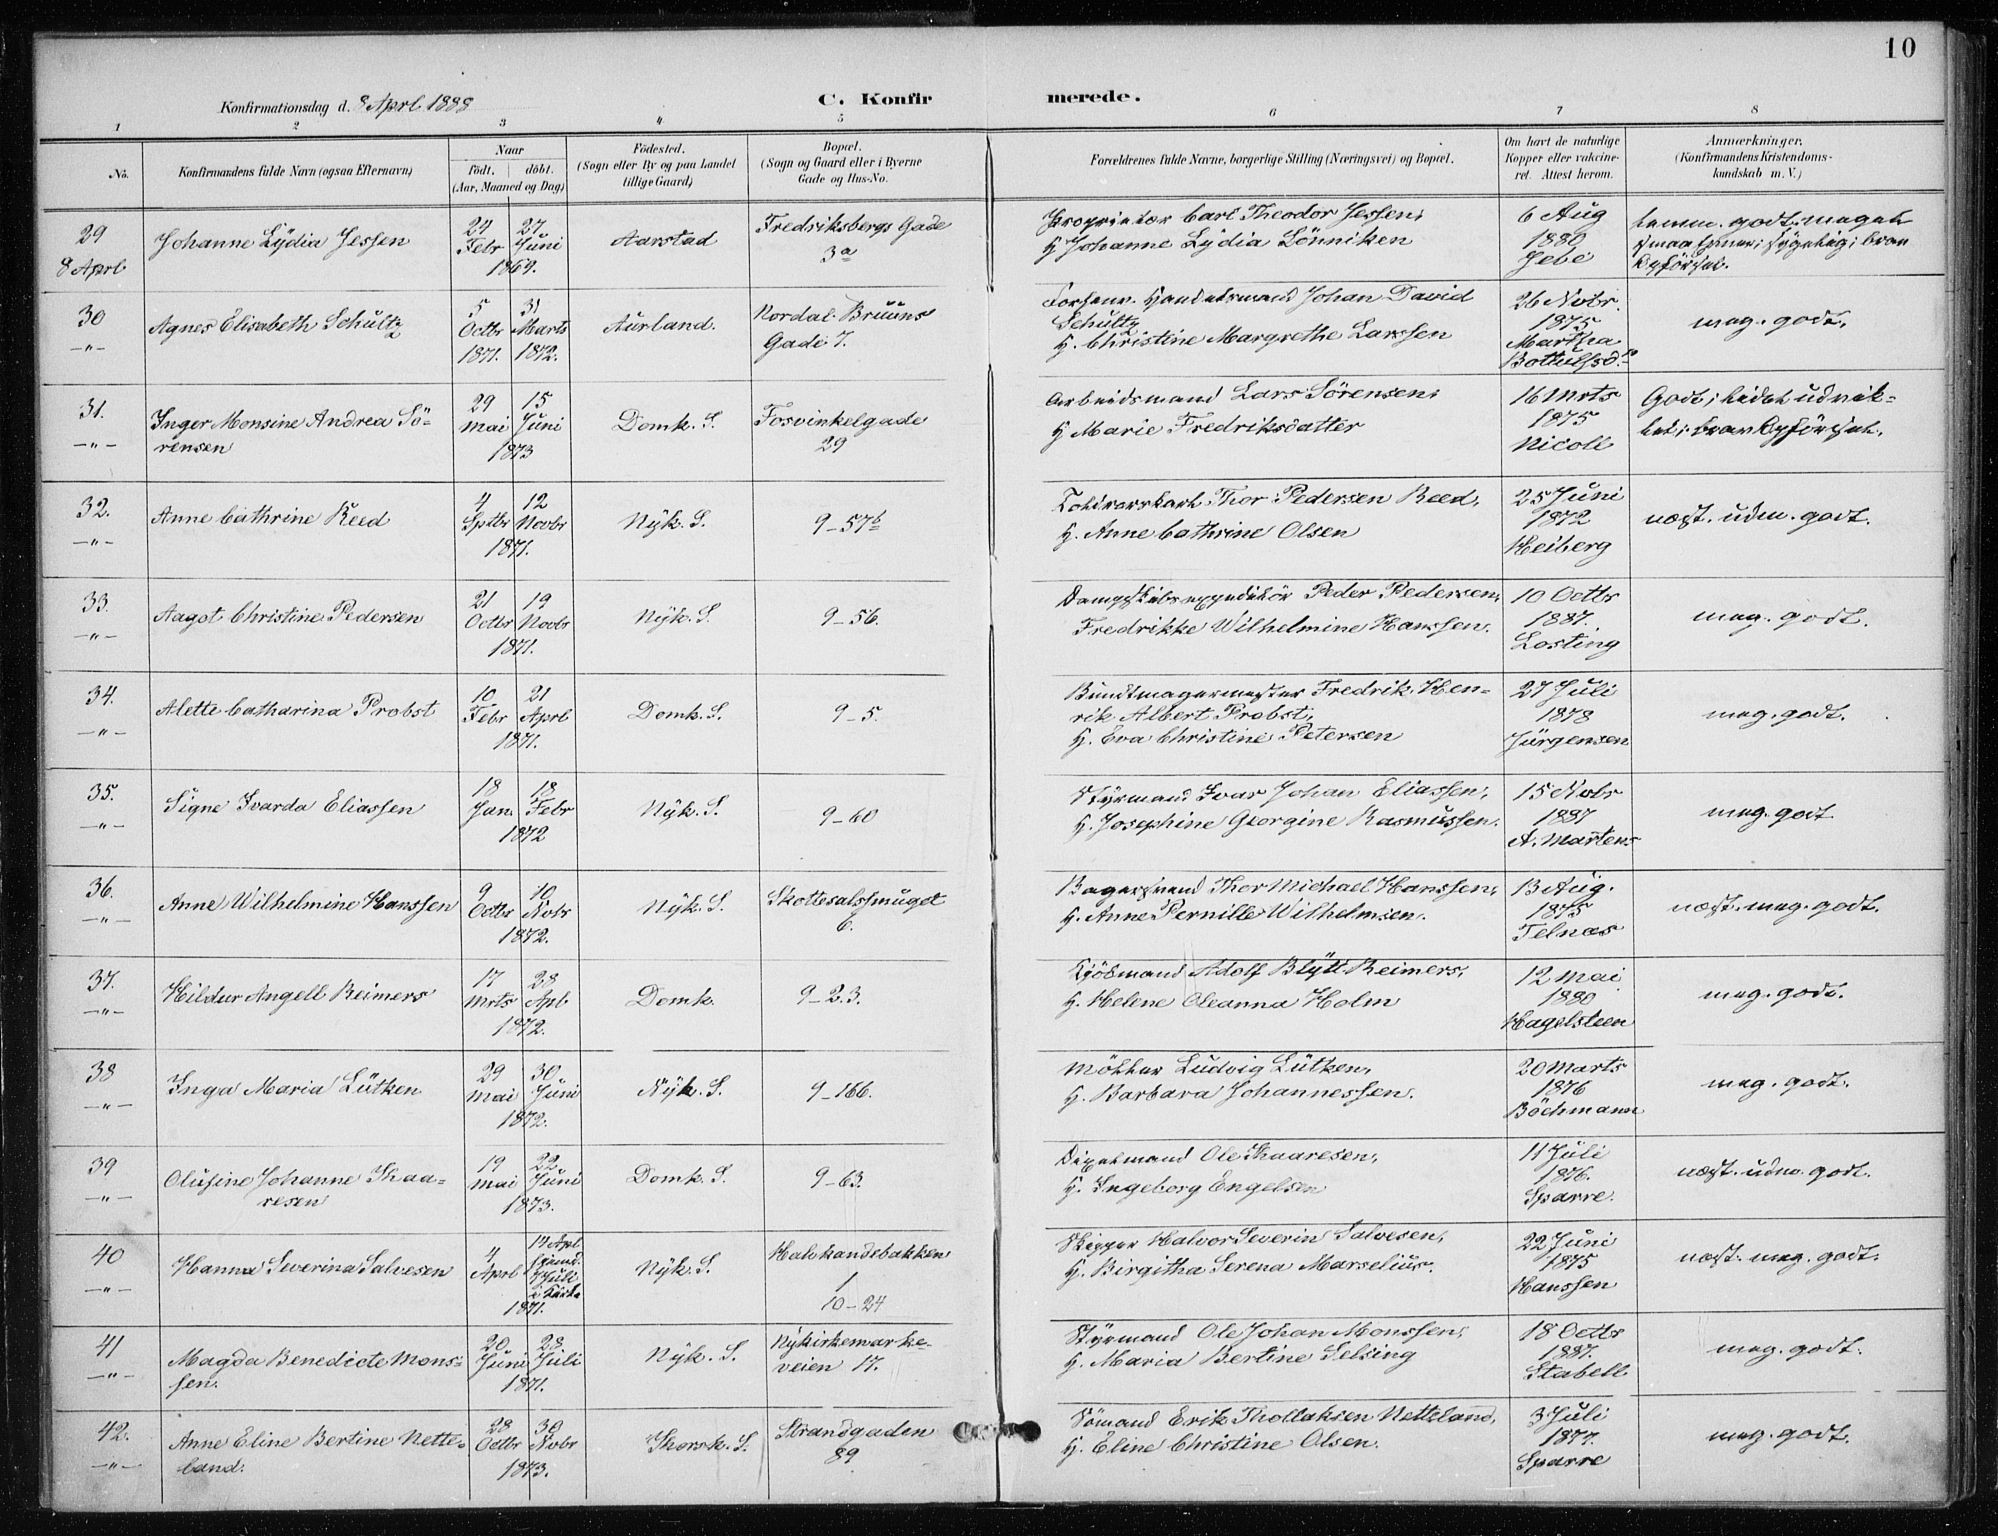 10
Konfirmationsdag d. 8 Aprl 1888
C. Konfirmerede.
1 2 3 4 5 6 7 8
No.
Konfirmandens fulde Navn (ogsaa Efternavn)
Naar
födt. | döbt.
(Aar, Maaned og Dag)
Födested.
(Sogn eller By og paa Landet
tillige Gaard)
Bopæl.
(Sogn og Gaard eller i Byerne
Gade og Hus-No.
Forældrenes fulde Navne, borgerlige Stilling (Næringsvei) og Bopæl.
Om havt de naturlige
Kopper eller vakcine-
ret. Attest herom.
Anmærkninger.
(Konfirmandens Kristendoms-
kundskab m. V.)
29
8 Aprl
Johanne Lydia Jessen
24 Febr
27 Juni
1869.
Aarstad
Fredriksbergs Gade
3a
Proprietær Carl Theodor Jessen,
H Johanne Lydia Lönniken
6 Aug
1880
Jebe
temm. godt. meget
smaa Evner; sygelig; brav
Opförsel.
30
-"-
Agnes Elisabeth Schultz
5 Octbr 1871.
31 Marts 1872.
Aurland.
Nordal Bruuns
Gade 7.
Forhenv. Handelsmand Johan David
Schultz
H. Christine Margrethe Larssen
26 Novbr.
1875
Martha
Bottulfsd.
meg. godt.
31.
-"-
Inger Monsine Andrea Sö-
rensen
29 Mai
15 Juni
1873
Domk. S.
Fosvinkelgade
29
Arbeidsmand Lars Sörensen,
H Marie Fredriksdatter
16 Mrts
1875
Nicoll
Godt; lidet udvik-
let; brav Opförsel.
32.
-"-
Anne Cathrine Reed
4 Sptbr
12 Novbr
1871.
Nyk. S.
9-57b
Toldrorskarl Thor Pedersen Reed,
H. Anne Cathrine Olsen
25 Juni
1872
Heiberg
næst. udm. godt.
33.
-"-
Aagot Christine Pedersen
21 Octbr
19 Novbr
1871.
Nyk. S.
9-56.
Dampskibsexpeditör Peder Pedersen,
Fredrikke Wilhelmine Hanssen.
10 Octbr
1887.
Losting
meg. godt.
34.
-"-
Alette Catharina Probst
10 Febr
21 Aprl
1871.
Domk. S.
9-5.
Bundtmagermester Fredrik Hen-
rik Albert Probst,
H. Eva Christine Petersen
27 Juli
1878
Jürgensen
meg. godt.
35.
-"-
Signe Ivarda Eliassen
18 Jan.
18 Febr
1872
Nyk. S.
9-60
Styrmand Ivar Johan Eliassen,
H. Josephine Georgine Rasmussen.
15 Nvbr
1887
A. Martens
meg. godt.
36.
-"-
Anne Wilhelmine Hanssen
9 Octbr
10 Nvbr
1872.
Nyk. S.
Skottesalssmuget
6.
Bagersvend Thor Michael Hanssen,
H. Anne Pernille Wilhelmsen.
13 Aug.
1875
Telnæs
næst. meg. godt.
37.
-"-
Hildur Angell Reimers
17 Mrts
28 Apl
1872.
Domk.
9-2.3.
Kjöbmand Adolf Blytt Reimers,
H. Helene Oleanna Holm
12 Mai
1880
Hagelsteen
meg. godt.
38
-"-
Inga Maria Lütken
29 Mai
30 Juni
1872.
Nyk. S.
9-166.
Möller Ludvig Lütken,
H. Barbara Johannessen.
20 Marts
1876
Böchmann
meg. godt.
39
-"-
Olufine Johanne Skaa-
resen
19 Mai
22 Juni
1873.
Domk. S.
9-63.
Dixelmand Ole Skaaresen,
H. Ingeborg Engelsen
11 Juli
1876.
Sparre.
næst. udm. godt.
40
-"-
Hanna Severina Salvesen
4 Aprl
14 Apl
hjemd.
Juli
i Kirke
1871.
Nyk. S.
Halvkandebakken
1
10-24
Skipper Halvor Severin Salvesen,
H. Birgitha Serena Marselius.
22 Juni
1875
Hanssen
næst. meg. godt.
41
-"-
Magda Benedicte Mons-
sen.
20 Juni
28 Juli
1871.
Nyk. S.
Nykirkemarke-
veien 17.
Styrmand Ole Johan Monssen,
H. Maria Bertine Selsing
18 Octbr
1887.
Stabell
meg. godt.
42.
-"-
Anne Eline Bertine Nette-
land.
28 Octbr
30 Nvbr
1873.
Korsk. S.
Strandgaden
89
Sömand Erik Thollaksen Netteland,
H. Eline Christine Olsen.
3 Juli
1877.
Sparre
meg. godt.